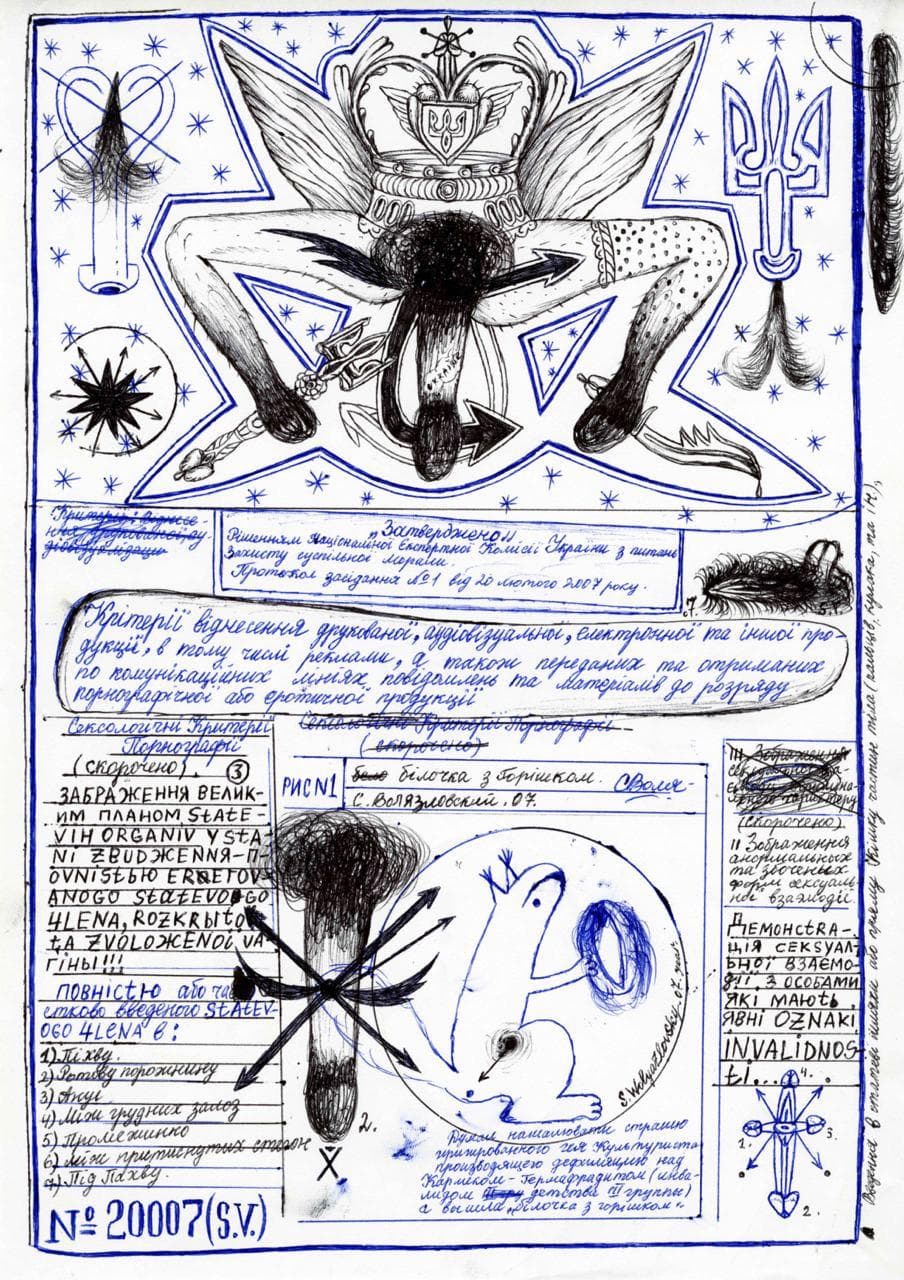 Критерії віднесе-
ння друкованої, ау-
діовізуальної
„Затверджено"
Рішенням Національної Експертної Комісії України з питань
Захисту суспільної моралі.
Протокол засідання №1 від 20 лютого 2007 року.
7.
S.V.
"Крітерії віднесення друкованої, аудіовізуальної, електронної та іншої про-
дукції, в тому числі реклами, а також переданих та отриманих
по комунікаційних лініях повідомлень та матеріалів до розряду
порнографічної або еротичної продукції
Сексологічні Критерії
Порнографії
(скорочено). ③
ЗАБРАЖЕННЯ ВЕЛИК-
ИМ ПЛАНОМ StAtE-
VIH ORGANIV У StA-
NI ZBUDЖЕННЯ-П-
OVNIStЬЮ ERЕГOV-
ANOGO StAtEVOGO
4LENA, ROZKRЫtO
tA ZVOLOЖENOЇ VA-
ГІНЫ!!!
ПОВНIStЮ або ча
стково введеного StAtEV-
ОGO 4LENA в:
1) Піхву.
2) Ротову порожнину
3) Анус
4) Між грудних залоз
5) Промежинно
6) між притиснутих стегон
7) Під Пахву.
№ 20007 (S.V.)
Сексологічні Критерії Порнографії
(скорочено)
РИС N1
бело білочка з Горішком.
СВоля-
С. Волязловский. 07.
S. Wolyazlovsky. 07. year.
2.
Ẍ
Думал намалювати страшно
Культуриста
производящего дефиляцию над
Карликом-Гермафрадитом (инва-
лидом детства III группы)
а вышла „білочка з горішком"
Зображення
(скорочено).
II Зображення
анормальных
та злочених
форм сексуаль-
ної взаємодії.
ДЕМОНСtRA-
ЦІЯ СЕКSУАЛ-
ЬНОЇ ВЗАЄМО-
ДІЇ З ОСОБАМИ
ЯКІ МАЮtЬ
ЯВНІ OZNAKI
INVALIDNOS-
tI...
4.
1.
3.
2.
Введення в статеві шляхи або прямую Кишку частин тіла (пальців, кулака, та ін.),